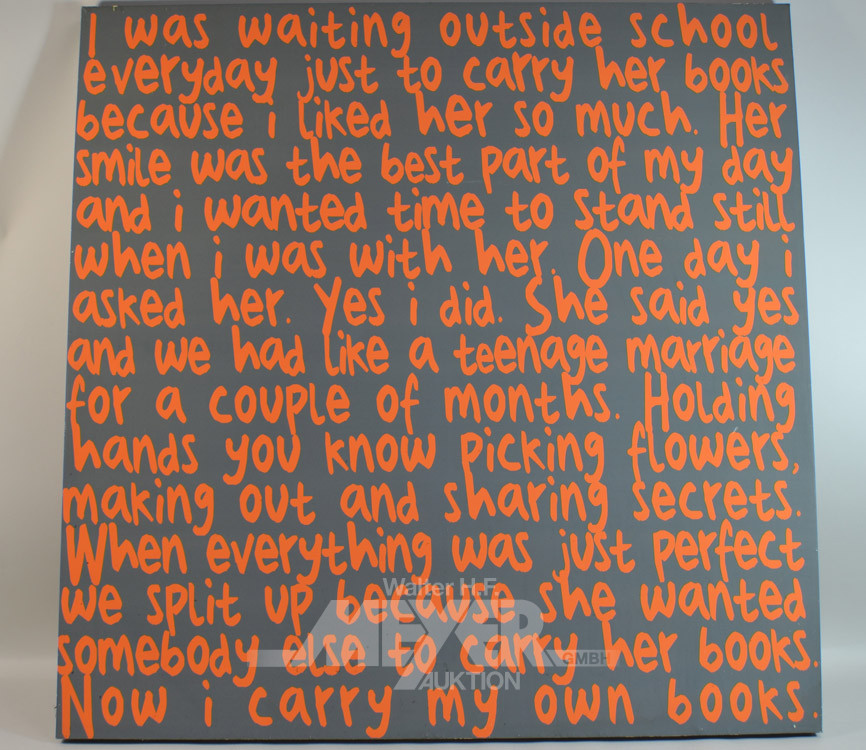 I was waiting outside school
everyday just to carry her books
because i liked her so much. Her
smile was the best part of my day
and i wanted time to stand still
when i was with her. One day i
asked her. Yes i did. She said yes
and we had like a teenage marriage
for a couple of months. Holding
hands you know picking flowers,
making out and sharing secrets.
When everything was just perfect
we split up because she wanted
somebody else to carry her books.
Now i carry my own books.
Walter H.F.
MEYER
GMBH
AUKTION